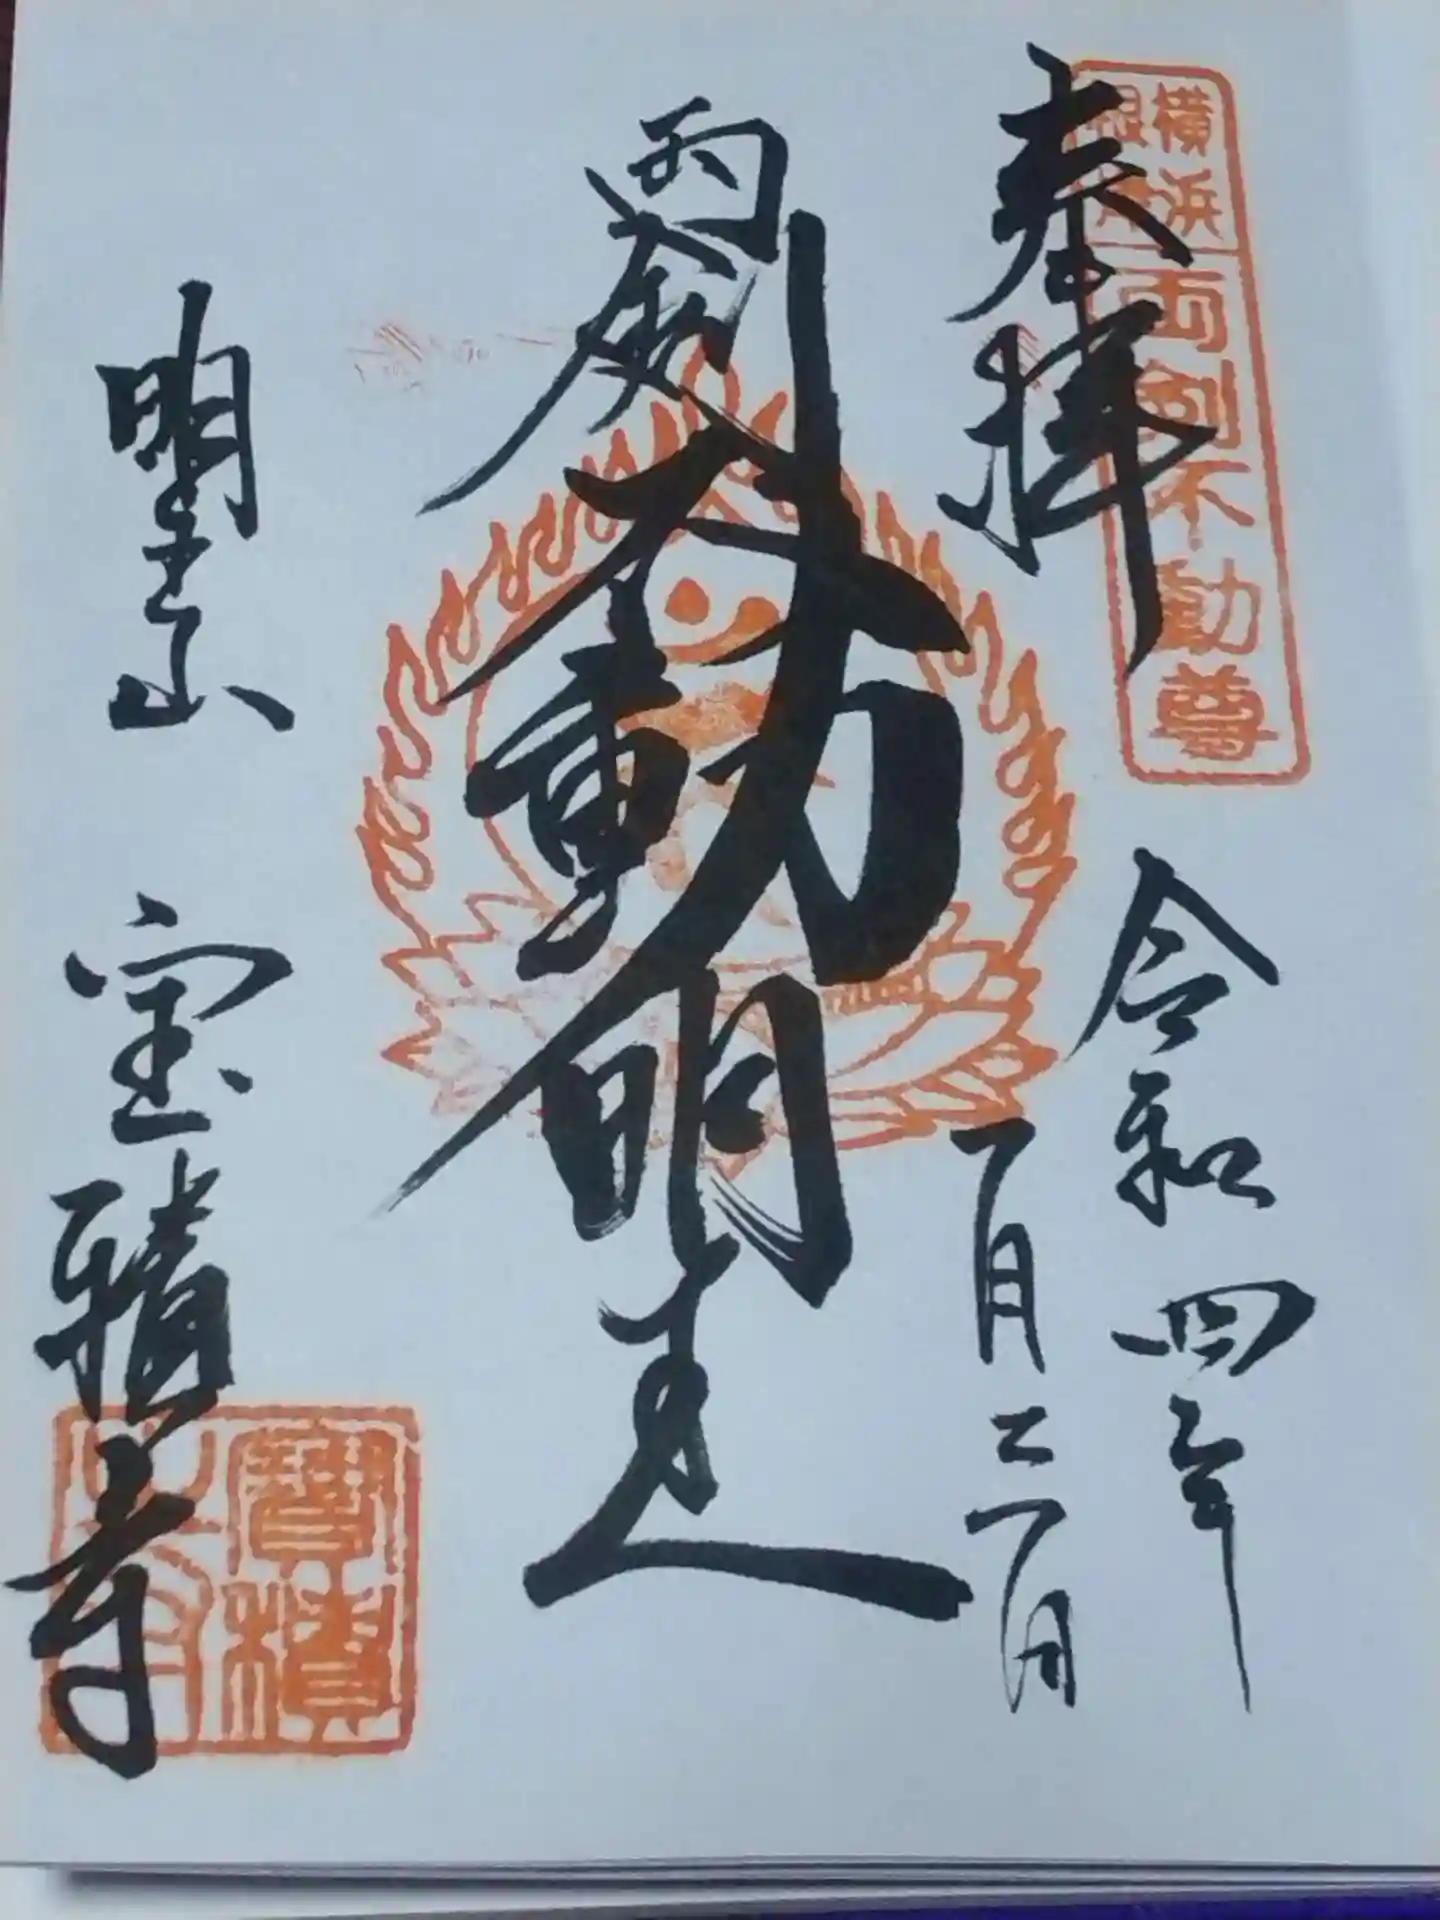 奉拝
横浜
根岸
両剣不動尊
令和四年
両劔不動明王
明王山 宝積寺
寶積